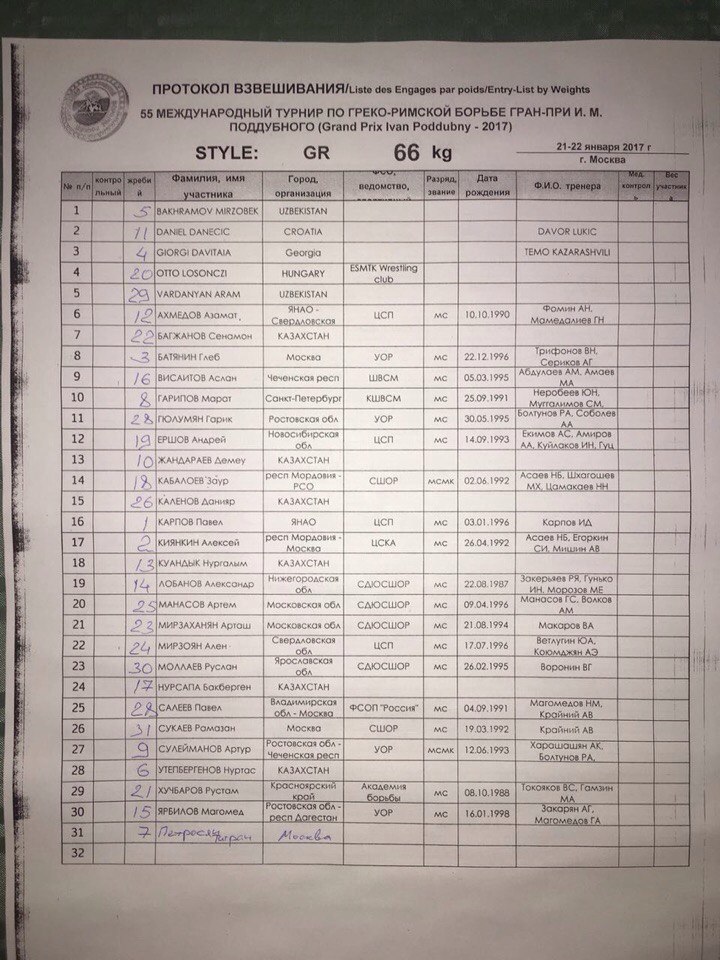 ПРОТОКОЛ ВЗВЕШИВАНИЯ/Liste des Engages par poids/Entry-List by Weights
55 МЕЖДУНАРОДНЫЙ ТУРНИР ПО ГРЕКО-РИМСКОЙ БОРЬБЕ ГРАН-ПРИ И. М.
ПОДДУБНОГО (Grand Prix Ivan Poddubny - 2017)
STYLE: GR 66 kg
21-22 января 2017 г
г. Москва
№ п/п контро льный жреби й Фамилия, имя участника Город, организация ФСО, ведомство, Разряд, звание Дата рождения Ф.И.О. тренера Мед. контрол ь Вес участник а
1 5 BAKHRAMOV MIRZOBEK UZBEKISTAN
2 11 DANIEL DANECIC CROATIA DAVOR LUKIC
3 4 GIORGI DAVITAIA Georgia TEMO KAZARASHVILI
4 20 OTTO LOSONCZI HUNGARY ESMTK Wrestling club
5 29 VARDANYAN ARAM UZBEKISTAN
6 12 АХМЕДОВ Азамат ЯНАО - Свердловская ЦСП мс 10.10.1990 Фомин АН, Мамедалиев ГН
7 22 БАГЖАНОВ Сенамон КАЗАХСТАН
8 3 БАТЯНИН Глеб Москва УОР мс 22.12.1996 Трифонов ВН, Сериков АГ
9 16 ВИСАИТОВ Аслан Чеченская респ ШВСМ мс 05.03.1995 Абдулаев АМ, Амаев МА
10 8 ГАРИПОВ Марат Санкт-Петербург КШВСМ мс 25.09.1991 Неробеев ЮН, Мугталимов СМ,
11 28 ГЮЛУМЯН Гарик Ростовская обл УОР мс 30.05.1995 Болтунов РА, Соболев АА
12 19 ЕРШОВ Андрей Новосибирская обл ЦСП мс 14.09.1993 Екимов АС, Амиров АА, Куйлаков ИН, Гуц
13 10 ЖАНДАРАЕВ Демеу КАЗАХСТАН
14 18 КАБАЛОЕВ Заур респ Мордовия - РСО СШОР мсмк 02.06.1992 Асаев НБ, Шхагошев МХ, Цамакаев НН
15 26 КАЛЕНОВ Данияр КАЗАХСТАН
16 1 КАРПОВ Павел ЯНАО ЦСП мс 03.01.1996 Карпов ИД
17 2 КИЯНКИН Алексей респ Мордовия - Москва ЦСКА мс 26.04.1992 Асаев НБ, Егоркин СИ, Мишин АВ
18 13 КУАНДЫК Нургалым КАЗАХСТАН
19 14 ЛОБАНОВ Александр Нижегородская обл СДЮСШОР мс 22.08.1987 Закерьяев РЯ, Гунько ИН, Морозов МЕ
20 25 МАНАСОВ Артем Московская обл СДЮСШОР мс 09.04.1996 Манасов ГС, Волков АМ
21 23 МИРЗАХАНЯН Арташ Московская обл СДЮСШОР мс 21.08.1994 Макаров ВА
22 24 МИРЗОЯН Ален Свердловская обл ЦСП мс 17.07.1996 Ветлугин ЮА, Коюмджян АЭ
23 30 МОЛЛАЕВ Руслан Ярославская обл СДЮСШОР мс 26.02.1995 Воронин ВГ
24 17 НУРСАПА Бакберген КАЗАХСТАН
25 28 САЛЕЕВ Павел Владимирская обл - Москва ФСОП "Россия" мс 04.09.1991 Магомедов НМ, Крайний АВ
26 31 СУКАЕВ Рамазан Москва СШОР мс 19.03.1992 Крайний АВ
27 9 СУЛЕЙМАНОВ Артур Ростовская обл - Чеченская респ УОР мсмк 12.06.1993 Харашашян АК, Болтунов РА,
28 6 УТЕПБЕРГЕНОВ Нуртас КАЗАХСТАН
29 21 ХУЧБАРОВ Рустам Красноярский край Академия борьбы мс 08.10.1988 Токояков ВС, Гамзин МА
30 15 ЯРБИЛОВ Магомед Ростовская обл - респ Дагестан УОР мс 16.01.1998 Закарян АГ, Магомедов ГА
31 7 Петросян Тигран Москва
32